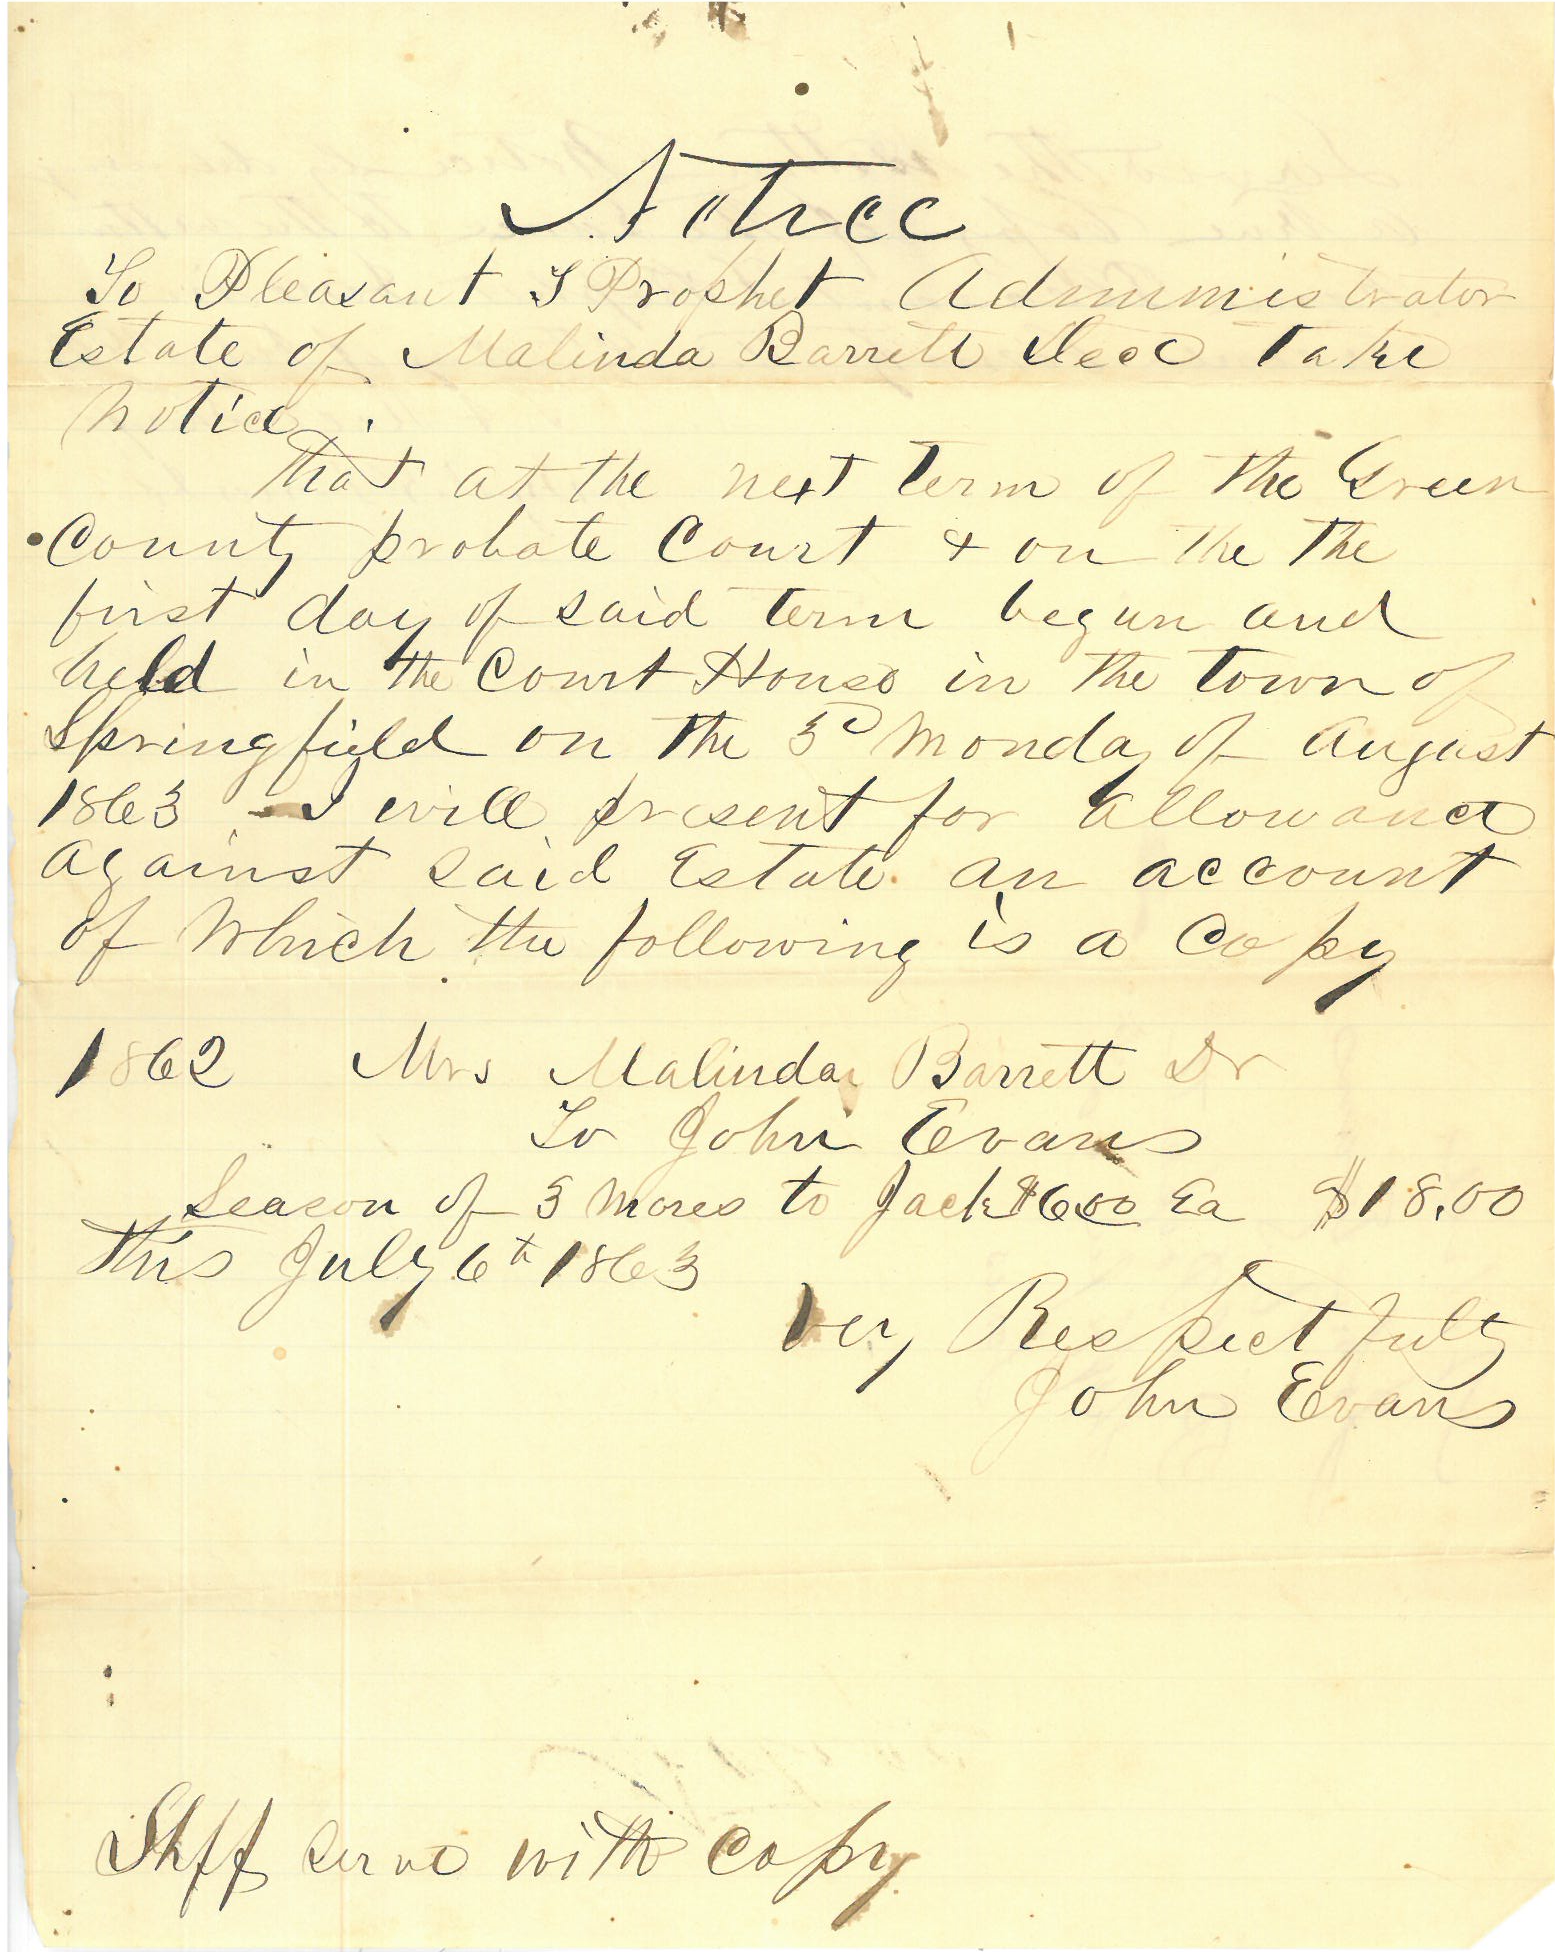 Notice
To Pleasant T Prophet Administrator
Estate of Malinda Barrett Decd Take
notice
That at the next term of the Green
County probate Court & on the the
first day of said term begun and
held in the Court House in the town of
Springfield on the 3d Monday of August
1863 I will present for allowance
against said Estate an account
of Which the following is a Copy
1862 Mrs Malinda Barrett Dr
To John Evans
Season of 3 Mares to Jack $6.00 Ea $18.00
This July 6th 1863
very Respectfuly
John Evans
Shff serve with Copy